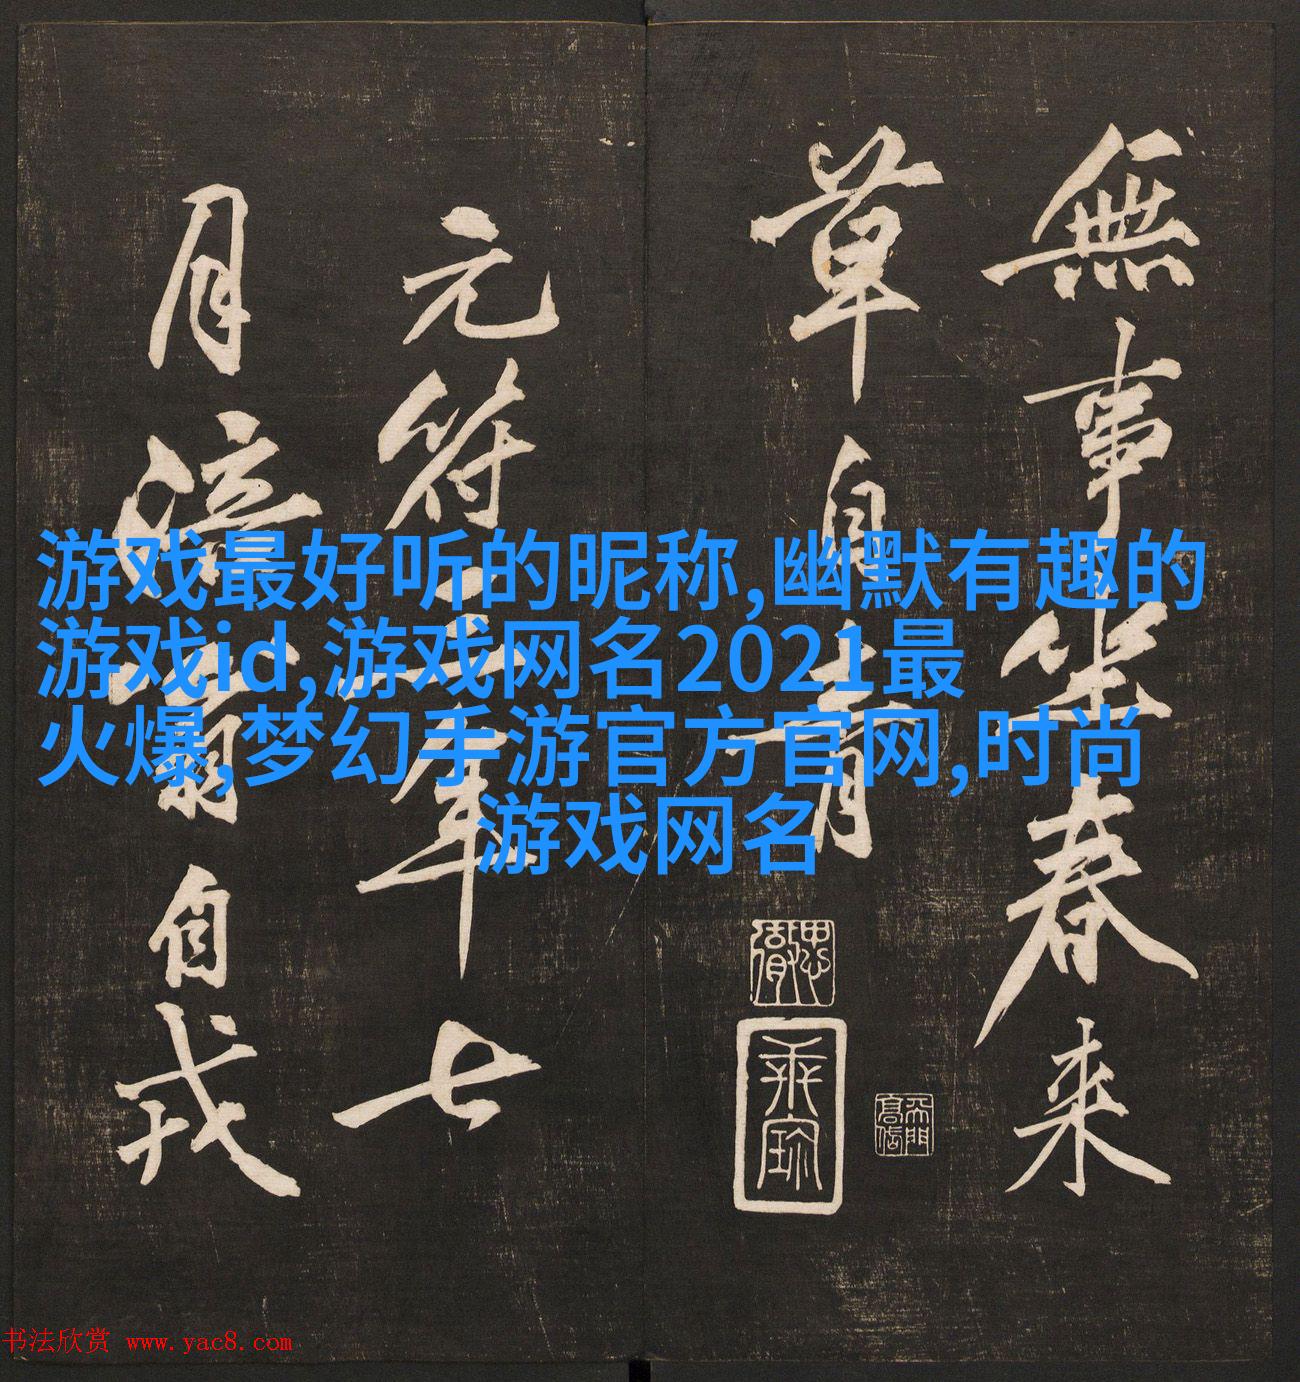 無事坐春来
草自青
元符三年七
月涪翁自戎
游戏最好听的昵称,幽默有趣的
游戏id,游戏网名2021最
火爆,梦幻手游官方官网,时尚
游戏网名
书法欣赏 www.yac8.com